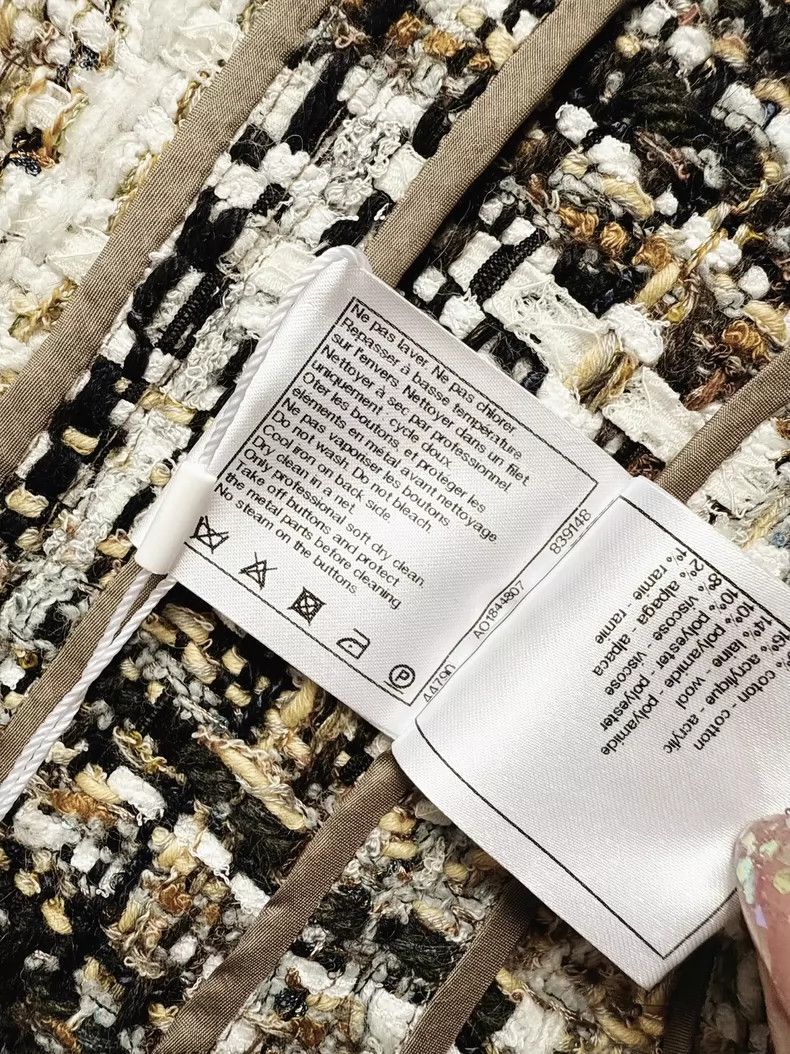 Ne pas laver. Ne pas chlorer
Repasser à basse température
sur l'envers. Nettoyer dans un filet
Nettoyer à sec par professionnel
uniquement, cycle doux
Oter les boutons, et protéger les
éléments en métal avant nettoyage
Ne pas vaporiser les boutons
Do not wash. Do not bleach.
Cool iron on back side.
Dry clean in a net.
Only professional soft dry clean.
Take off buttons and protect
the metal parts before cleaning
No steam on the buttons.
P
44790 AO1844807 839148
coton - cotton
14% acrylique - acrylic
10% laine - wool
10% polyamide - polyamide
8% polyester - polyester
2% viscose - viscose
1% alpaga - alpaca
ramie - ramie